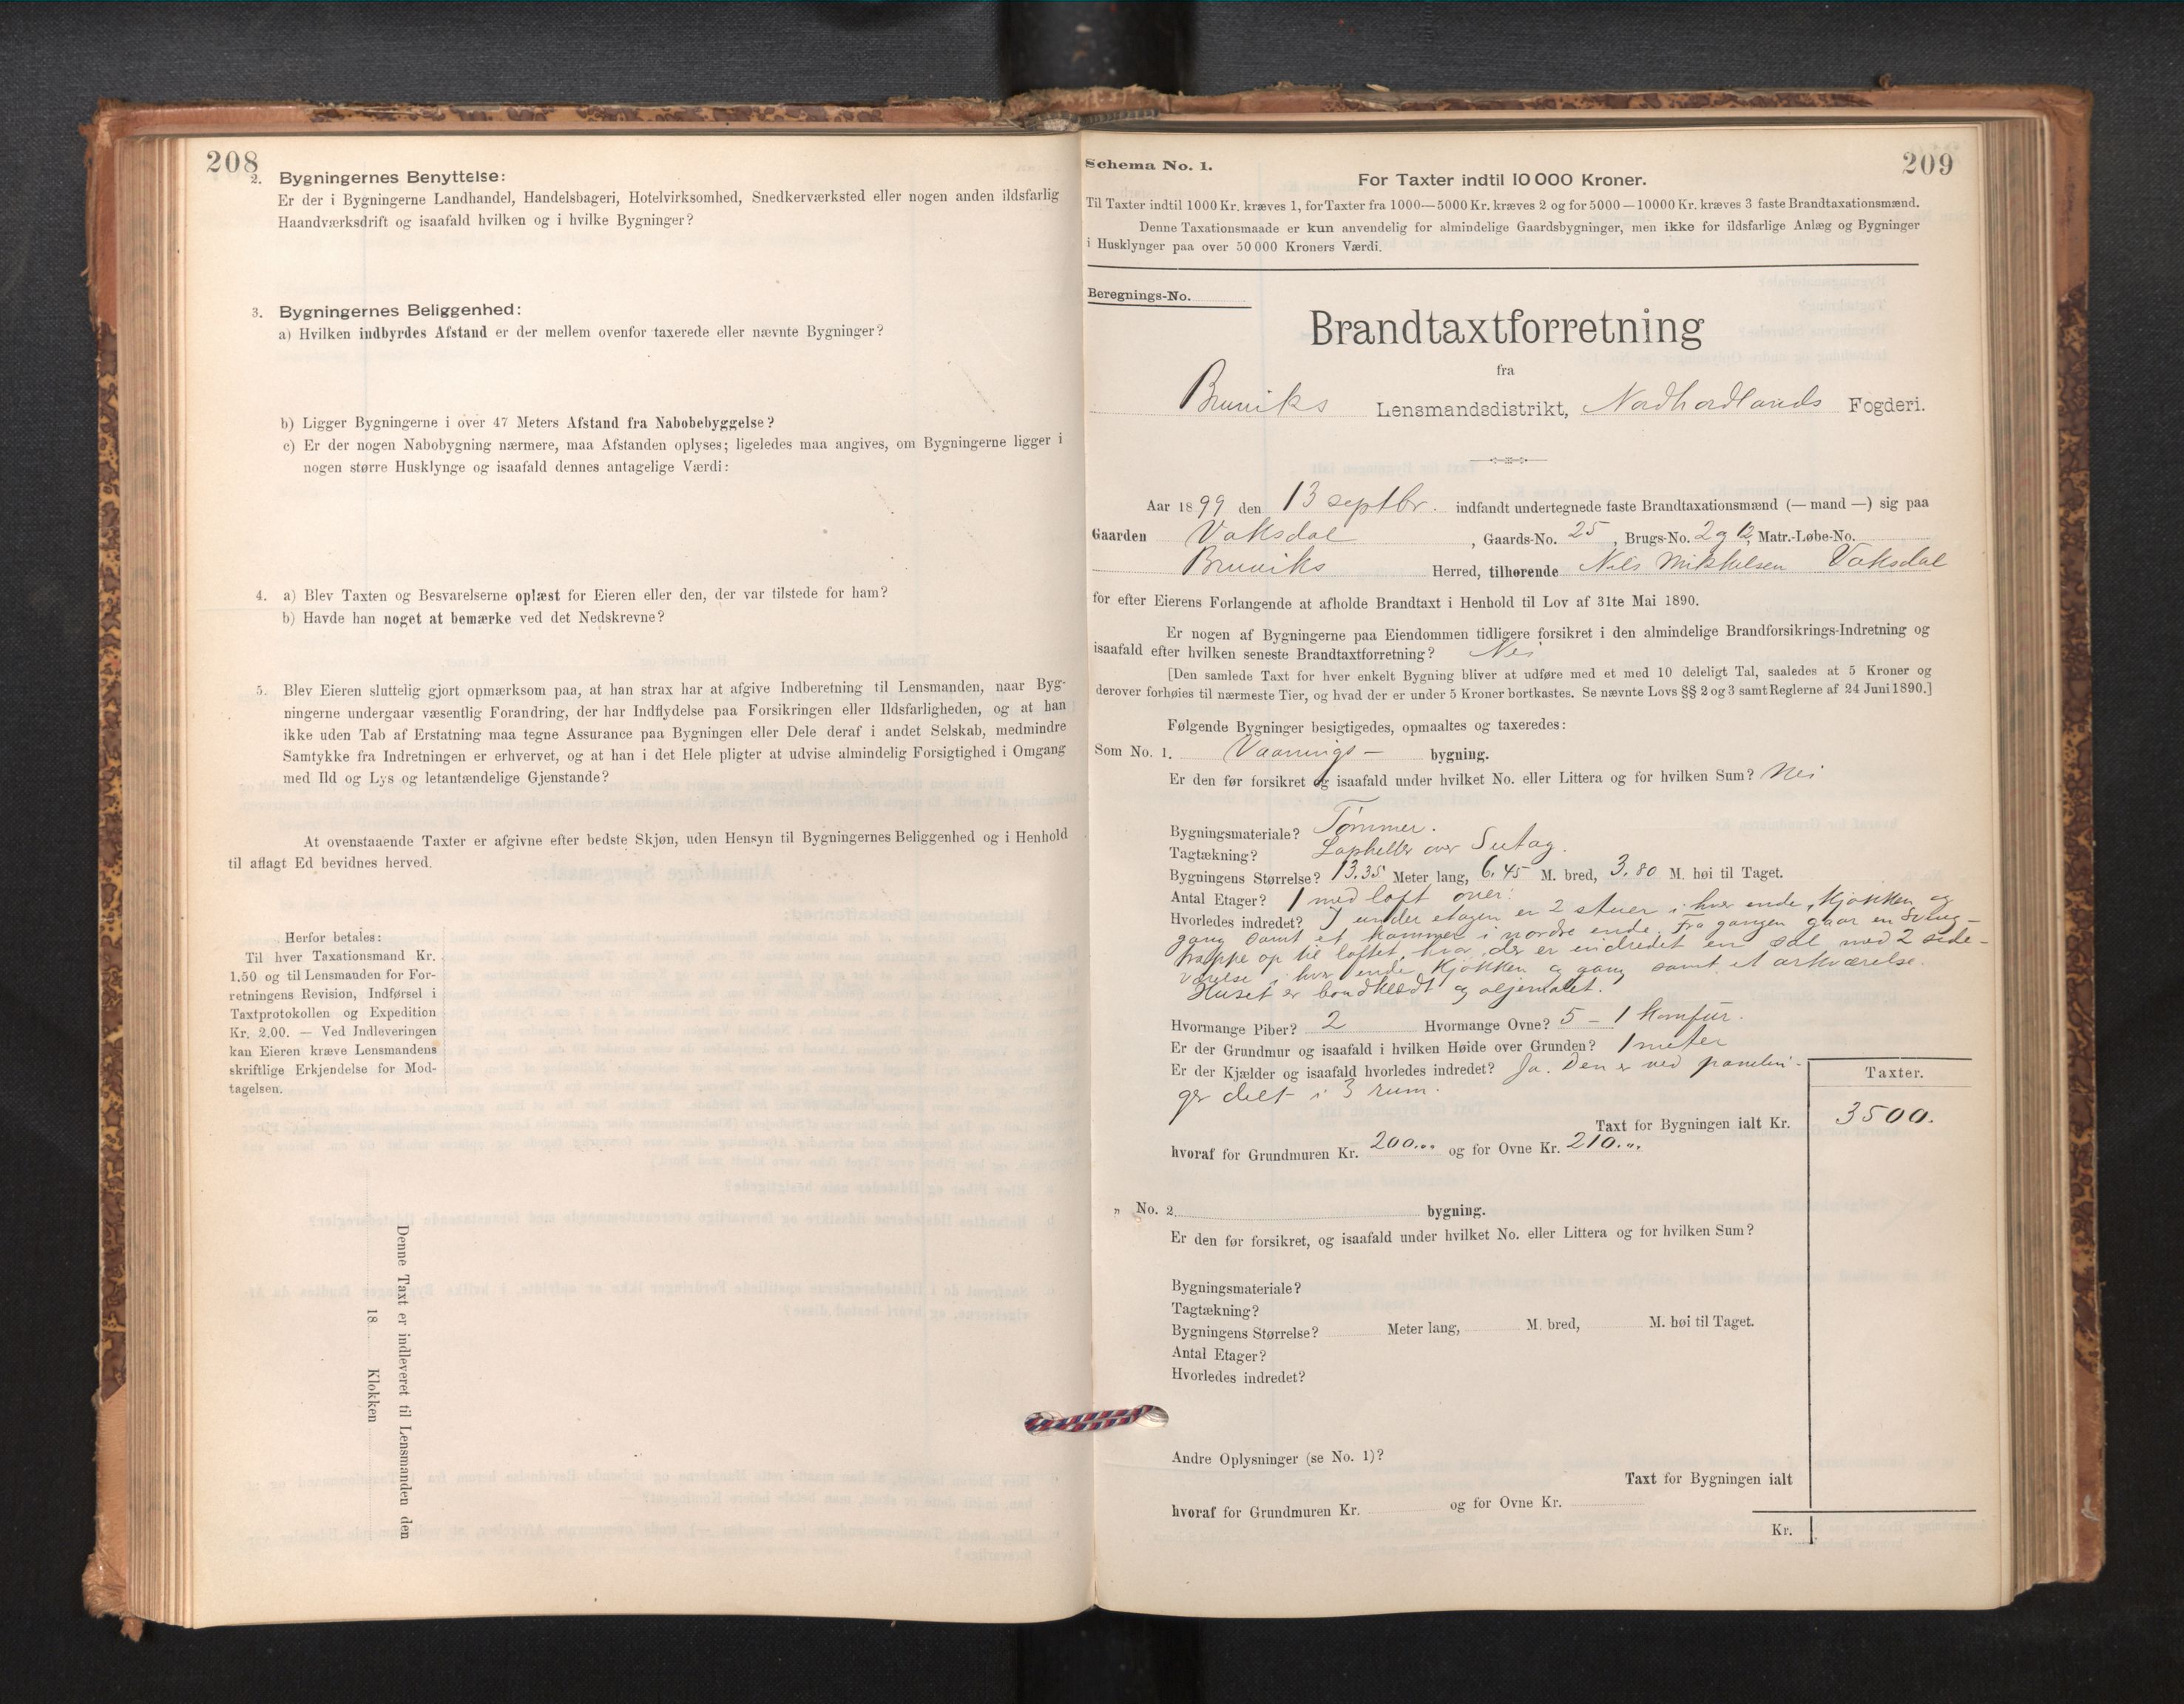 208
2. Bygningernes Benyttelse:
Er der i Bygningerne Landhandel, Handelsbageri, Hotelvirksomhed, Snedkerværksted eller nogen anden ildsfarlig
Haandværksdrift og isaafald hvilken og i hvilke Bygninger?
3. Bygningernes Beliggenhed:
a) Hvilken indbyrdes Afstand er der mellem ovenfor taxerede eller nævnte Bygninger?
b) Ligger Bygningerne i over 47 Meters Afstand fra Nabobebyggelse?
c) Er der nogen Nabobygning nærmere, maa Afstanden oplyses; ligeledes maa angives, om Bygningerne ligger i
nogen større Husklynge og isaafald dennes antagelige Værdi:
4. a) Blev Taxten og Besvarelserne oplæst for Eieren eller den, der var tilstede for ham?
b) Havde han noget at bemærke ved det Nedskrevne?
5. Blev Eieren sluttelig gjort opmærksom paa, at han strax har at afgive Indberetning til Lensmanden, naar Byg-
ningerne undergaar væsentlig Forandring, der har Indflydelse paa Forsikringen eller Ildsfarligheden, og at han
ikke uden Tab af Erstatning maa tegne Assurance paa Bygningen eller Dele deraf i andet Selskab, medmindre
Samtykke fra Indretningen er erhvervet, og at han i det Hele pligter at udvise almindelig Forsigtighed i Omgang
med Ild og Lys og letantændelige Gjenstande?
At ovenstaaende Taxter er afgivne efter bedste Skjøn, uden Hensyn til Bygningernes Beliggenhed og i Henhold
til aflagt Ed bevidnes herved.
Herfor betales:
Til hver Taxationsmand Kr.
1.50 og til Lensmanden for For-
retningens Revision, Indførsel i
Taxtprotokollen og Expedition
Kr. 2.00. — Ved Indleveringen
kan Eieren kræve Lensmandens
skriftlige Erkjendelse for Mod-
tagelsen.
Denne Taxt er indleveret til Lensmanden den
18 Klokken
209
Schema No. 1.
For Taxter indtil 10 000 Kroner.
Til Taxter indtil 1000 Kr. kræves 1, for Taxter fra 1000—5000 Kr. kræves 2 og for 5000—10000 Kr. kræves 3 faste Brandtaxationsmænd.
Denne Taxationsmaade er kun anvendelig for almindelige Gaardsbygninger, men ikke for ildsfarlige Anlæg og Bygninger
i Husklynger paa over 50 000 Kroners Værdi.
Beregnings-No.
Brandtaxtforretning
fra
Bruviks Lensmandsdistrikt, Nordhordlands Fogderi.
Aar 1899 den 13 septbr. indfandt undertegnede faste Brandtaxationsmænd (— mand —) sig paa
Gaarden Vaksdal, Gaards-No. 25, Brugs-No. 2 og 12, Matr.-Løbe-No.
Bruviks Herred, tilhørende Nils Mikkelsen Vaksdal
for efter Eierens Forlangende at afholde Brandtaxt i Henhold til Lov af 31te Mai 1890.
Er nogen af Bygningerne paa Eiendommen tidligere forsikret i den almindelige Brandforsikrings-Indretning og
isaafald efter hvilken seneste Brandtaxtforretning? Nei
[Den samlede Taxt for hver enkelt Bygning bliver at udføre med et med 10 deleligt Tal, saaledes at 5 Kroner og
derover forhøies til nærmeste Tier, og hvad der er under 5 Kroner bortkastes. Se nævnte Lovs §§ 2 og 3 samt Reglerne af 24 Juni 1890.]
Følgende Bygninger besigtigedes, opmaaltes og taxeredes:
Som No. 1. Vaanings— bygning.
Er den før forsikret og isaafald under hvilket No. eller Littera og for hvilken Sum? Nei
Bygningsmateriale? Tømmer.
Tagtækning? Lapheller over Sutag.
Bygningens Størrelse? 13.35 Meter lang, 6.45 M. bred, 3.80 M. høi til Taget.
Antal Etager? 1 med loft over.
Hvorledes indredet? I under etagen er 2 stuer i hver ende, kjøkken og
gang samt et kammer i nordre ende. Fra gangen gaar en sving-
trappe op til loftet, hvor der er indredet en sal med 2 side-
værelse i hver ende kjøkken og gang samt et arkværelse.
Huset er bordklædt og oljemalet.
Hvormange Piber? 2 Hvormange Ovne? 5 – 1 komfur.
Er der Grundmur og isaafald i hvilken Høide over Grunden? 1 meter
Er der Kjælder og isaafald hvorledes indredet? Ja. Den er ved panelin-
ger delt i 3 rum.
Taxter.
Taxt for Bygningen ialt Kr. 3500.
hvoraf for Grundmuren Kr. 200.,, og for Ovne Kr. 210.,,
" No. 2 bygning.
Er den før forsikret, og isaafald under hvilket No. eller Littera og for hvilken Sum?
Bygningsmateriale?
Tagtækning?
Bygningens Størrelse? Meter lang, M. bred, M. høi til Taget.
Antal Etager?
Hvorledes indredet?
Andre Oplysninger (se No. 1)?
Taxt for Bygningen ialt
hvoraf for Grundmuren Kr. og for Ovne Kr.
Kr.